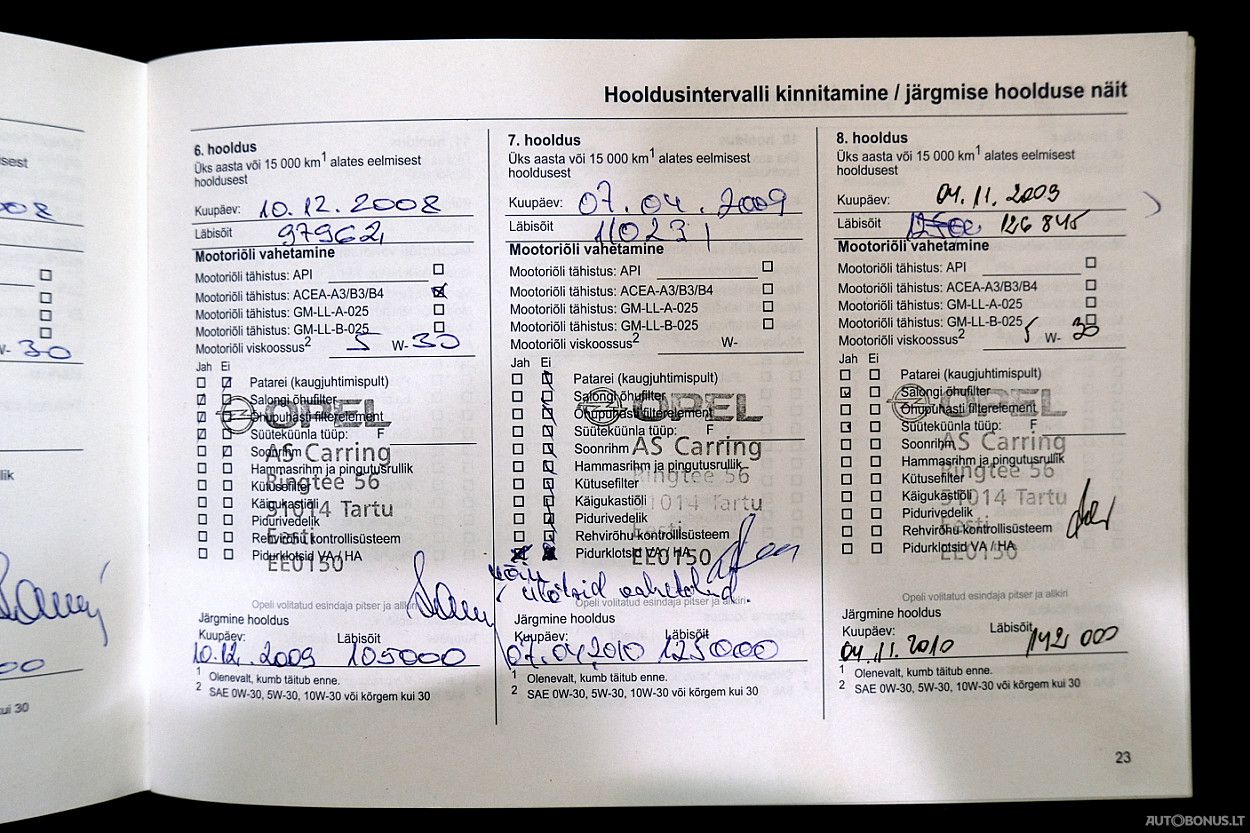 Hooldusintervalli kinnitamine / järgmise hoolduse näit
sest
008
W- 30
lik
00
kui 30
6. hooldus
Üks aasta või 15 000 km1 alates eelmisest
hooldusest
Kuupäev: 10.12.2008
Läbisõit 97962
Mootoriõli vahetamine
Mootoriõli tähistus: API
Mootoriõli tähistus: ACEA-A3/B3/B4
Mootoriõli tähistus: GM-LL-A-025
Mootoriõli tähistus: GM-LL-B-025
Mootoriõli viskoossus2 5 W- 30
Jah Ei
Patarei (kaugjuhtimispult)
Salongi õhufilter
Õhupuhasti filterelement
Süüteküünla tüüp: F
Soonrihm
Hammasrihm ja pingutusrullik
Kütusefilter
Käigukastiõli
Pidurivedelik
Rehvirõhu kontrollisüsteem
Pidurklotsid VA / HA
OPEL
AS Carring
Ringtee 56
51014 Tartu
Eesti
EE0150
Opeli volitatud esindaja pitser ja allkiri
Järgmine hooldus
Kuupäev: Läbisõit
10.12.2009 105000
1 Olenevalt, kumb täitub enne.
2 SAE 0W-30, 5W-30, 10W-30 või kõrgem kui 30
7. hooldus
Üks aasta või 15 000 km1 alates eelmisest
hooldusest
Kuupäev: 07.04.2009
Läbisõit 110231
Mootoriõli vahetamine
Mootoriõli tähistus: API
Mootoriõli tähistus: ACEA-A3/B3/B4
Mootoriõli tähistus: GM-LL-A-025
Mootoriõli tähistus: GM-LL-B-025
Mootoriõli viskoossus2 W-
Jah Ei
Patarei (kaugjuhtimispult)
Salongi õhufilter
Õhupuhasti filterelement
Süüteküünla tüüp: F
Soonrihm
Hammasrihm ja pingutusrullik
Kütusefilter
Käigukastiõli
Pidurivedelik
Rehvirõhu kontrollisüsteem
Pidurklotsid VA / HA
OPEL
AS Carring
Ringtee 56
51014 Tartu
Eesti
EE0150
vahetatud.
Opeli volitatud esindaja pitser ja allkiri
Järgmine hooldus
Kuupäev: Läbisõit
07.04.2010 125000
1 Olenevalt, kumb täitub enne.
2 SAE 0W-30, 5W-30, 10W-30 või kõrgem kui 30
8. hooldus
Üks aasta või 15 000 km1 alates eelmisest
hooldusest
Kuupäev: 04.11.2009
Läbisõit 126 845
Mootoriõli vahetamine
Mootoriõli tähistus: API
Mootoriõli tähistus: ACEA-A3/B3/B4
Mootoriõli tähistus: GM-LL-A-025
Mootoriõli tähistus: GM-LL-B-025
Mootoriõli viskoossus2 5 W- 30
Jah Ei
Patarei (kaugjuhtimispult)
Salongi õhufilter
Õhupuhasti filterelement
Süüteküünla tüüp: F
Soonrihm
Hammasrihm ja pingutusrullik
Kütusefilter
Käigukastiõli
Pidurivedelik
Rehvirõhu kontrollisüsteem
Pidurklotsid VA / HA
OPEL
AS Carring
Ringtee 56
51014 Tartu
Eesti
EE0150
Opeli volitatud esindaja pitser ja allkiri
Järgmine hooldus
Kuupäev: Läbisõit
04.11.2010 142 000
1 Olenevalt, kumb täitub enne.
2 SAE 0W-30, 5W-30, 10W-30 või kõrgem kui 30
23
AUTOBONUS.LT